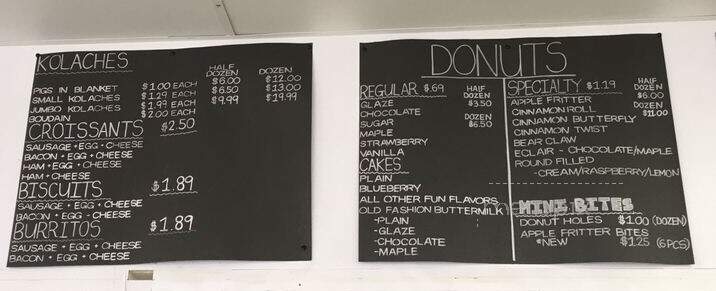 KOLACHES
HALF DOZEN DOZEN
PIGS IN BLANKET $1.00 EACH $6.00 $12.00
SMALL KOLACHES $1.29 EACH $6.50 $13.00
JUMBO KOLACHES $1.99 EACH $9.99 $19.99
BOUDAIN $2.00 EACH
CROISSANTS $2.50
SAUSAGE + EGG + CHEESE
BACON + EGG + CHEESE
HAM + EGG + CHEESE
HAM + CHEESE
BISCUITS $1.89
SAUSAGE + EGG + CHEESE
BACON + EGG + CHEESE
BURRITOS $1.89
SAUSAGE + EGG + CHEESE
BACON + EGG + CHEESE
DONUTS
REGULAR $.69 HALF DOZEN
GLAZE $3.50
CHOCOLATE DOZEN
SUGAR $6.50
MAPLE
STRAWBERRY
VANILLA
CAKES
PLAIN
BLUEBERRY
ALL OTHER FUN FLAVORS
OLD FASHION BUTTERMILK
-PLAIN
-GLAZE
-CHOCOLATE
-MAPLE
SPECIALTY $1.19 HALF DOZEN
APPLE FRITTER $6.00
CINNAMON ROLL DOZEN
CINNAMON BUTTERFLY $11.00
CINNAMON TWIST
BEAR CLAW
ECLAIR - CHOCOLATE/MAPLE
ROUND FILLED
-CREAM/RASPBERRY/LEMON
MINI BITES
DONUT HOLES $1.00 (DOZEN)
APPLE FRITTER BITES $1.25 (6 PCS)
*NEW